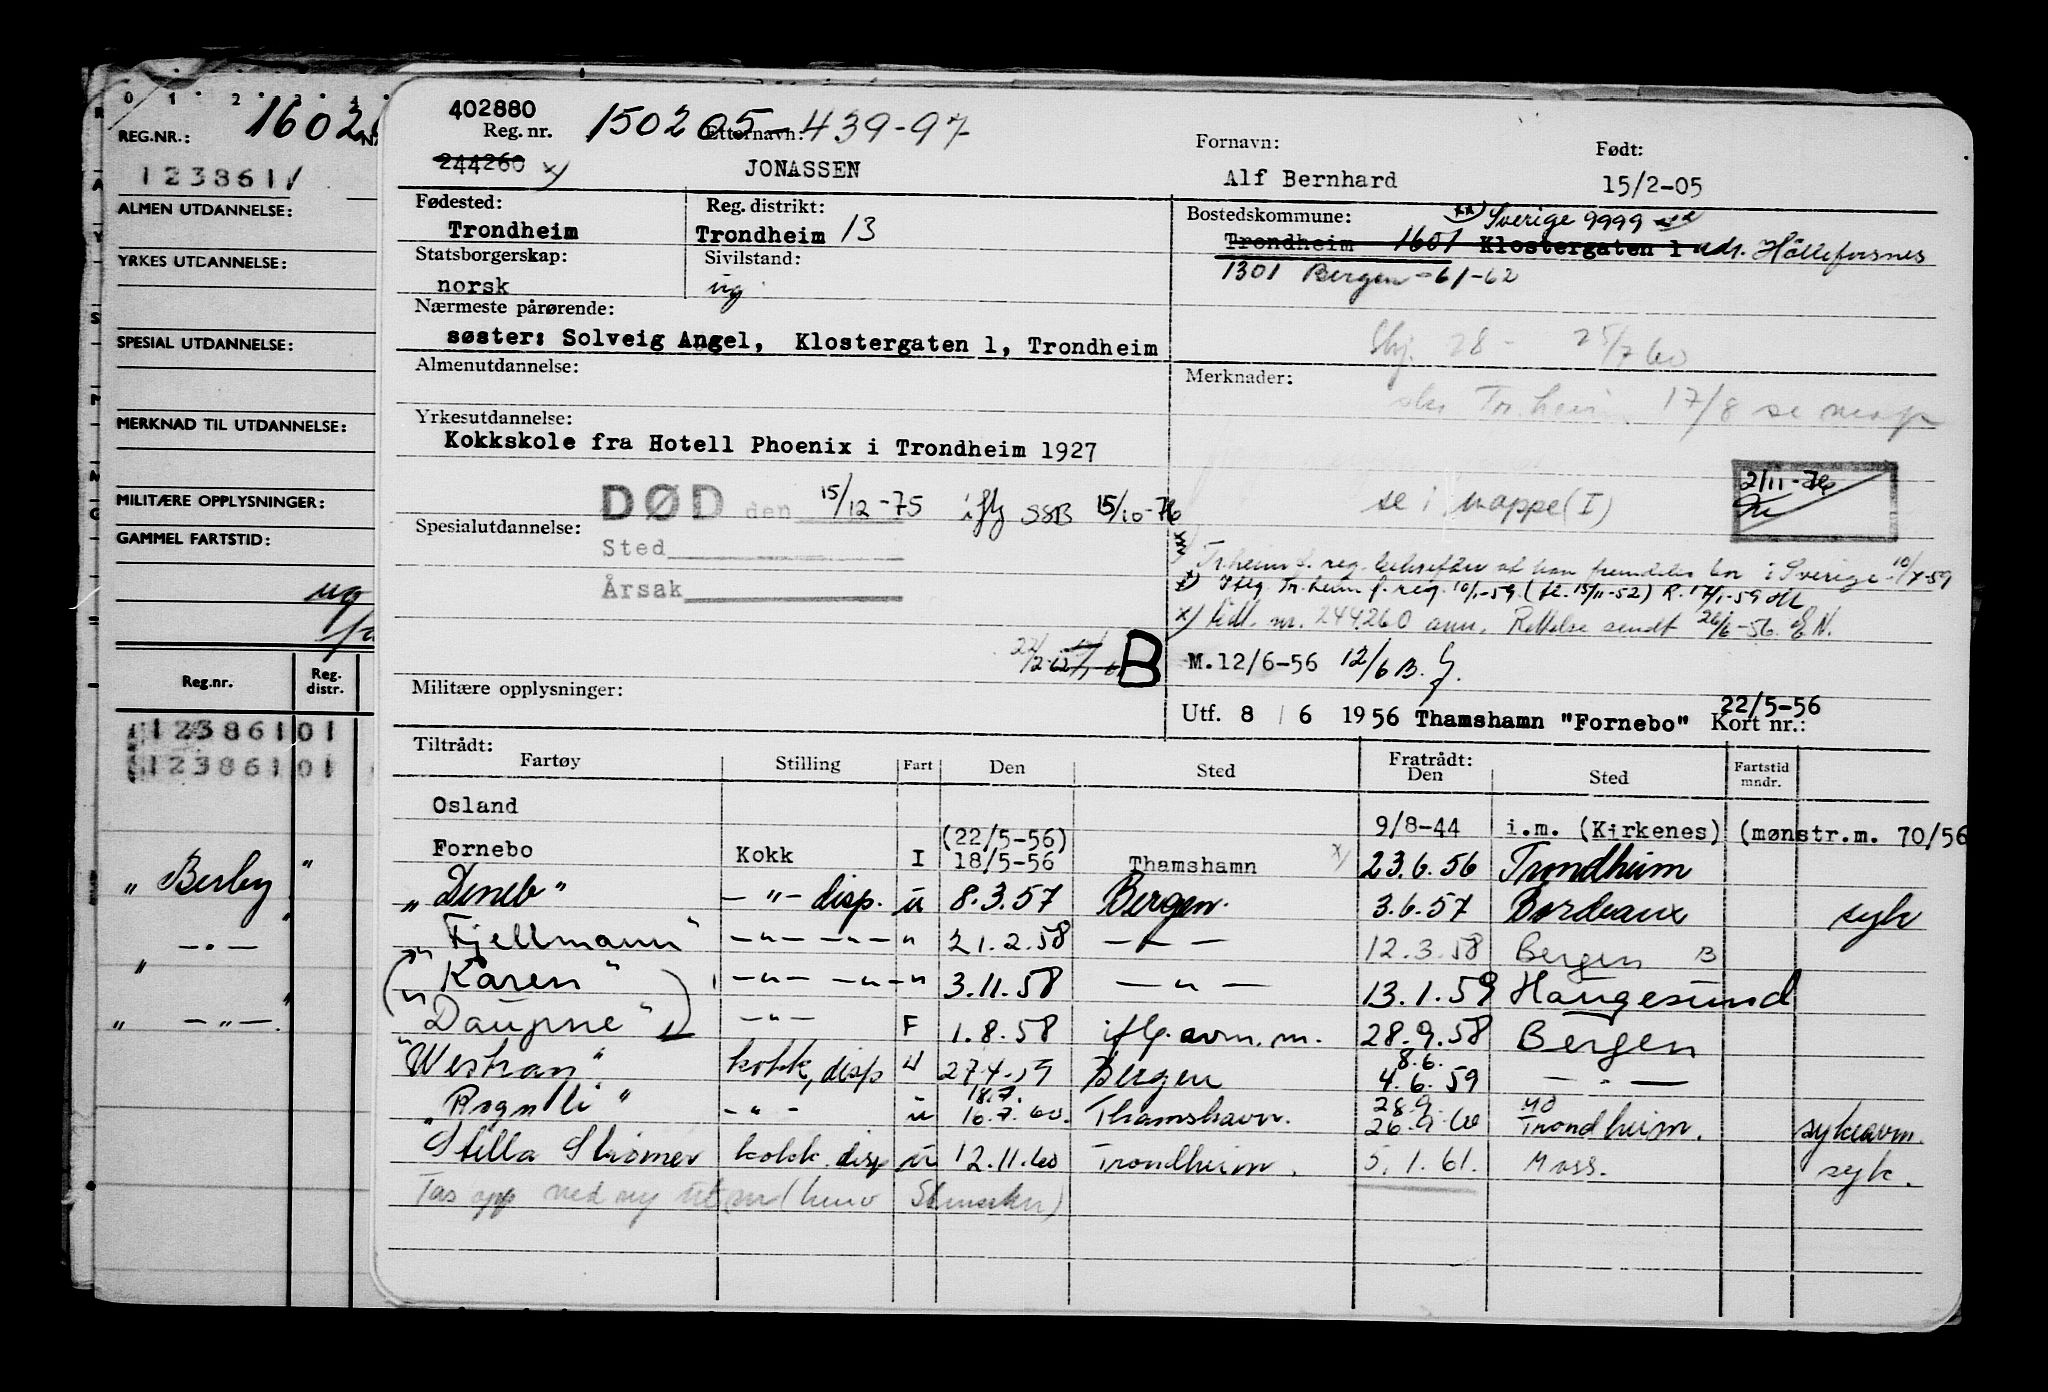 0 1 2 3 4
REG.NR.: 1602
123861
ALMEN UTDANNELSE:
YRKES UTDANNELSE:
SPESIAL UTDANNELSE:
MERKNAD TIL UTDANNELSE:
MILITÆRE OPPLYSNINGER:
GAMMEL FARTSTID:
ug
Reg.nr. Reg. distr.
123861 01
123861 01
" Berby "
402880
Reg. nr. 150205-439-97
Etternavn: Fornavn: Født:
244260 x) JONASSEN Alf Bernhard 15/2-05
Fødested: Reg. distrikt: Bostedskommune: xx) Sverige 9999
Trondheim Trondheim 13 Trondheim 1601 Klostergaten 1 adr. Hälleforsnes
Statsborgerskap: Sivilstand: 1301 Bergen -61-62
norsk ug
Nærmeste pårørende:
søster: Solveig Angel, Klostergaten 1, Trondheim 28 - 25/7 60
Almenutdannelse: Merknader: 17/8 se
Yrkesutdannelse:
Kokkskole fra Hotell Phoenix i Trondheim 1927
DØD den 15/12-75 iflg SSB 15/10-76 se i mappe (I) 2/11-76
Spesialutdannelse:
Sted
Årsak
Tr.heim f. reg. bekrefter at han fremdeles bor i Sverige 10/ -59
Iflg. Tr.heim f. reg. 10/1-59. (fl. 15/11-52) R. 17/1-59
x) Tidl. nr. 244260 ann. Rettelse sendt 26/6-56. EN.
B M.12/6-56 12/6 B.
Militære opplysninger:
Utf. 8 / 6 1956 Thamshamn "Fornebo" 22/5-56 Kort nr.:
Tiltrådt: Fratrådt:
Fartøy Stilling Fart Den Sted Den Sted Fartstid mndr.
Osland 9/8-44 i.m. (Kirkenes) (mønstr.m. 70/56
Fornebo Kokk I (22/5-56) 18/5-56 Thamshamn x) 23.6.56 Trondheim
"Deneb" - " - disp. u 8.3.57 Bergen. 3.6.57 Bordeaux syk
"Fjellmann" - " - - " - " 21.2.58 - " - 12.3.58 Bergen B
("Karen" - " - - " - " 3.11.58 - " - 13.1.59 Haugesund
"Dauphne") - " - F 1.8.58 iflg. avm.m. 28.9.58 Bergen
"Westray" kokk, disp u 27.4.59 Bergen 8.6. 4.6.59 - " -
"Rognli" - " - u 18.7. 16.7.60. Thamshavn. 28.9. 26.9.60 MO Trondheim. sykeavm.
Stella Strømer kokk disp u 12.11.60 Trondheim. 5.1.61. Moss. syk.
Tas opp ved ny